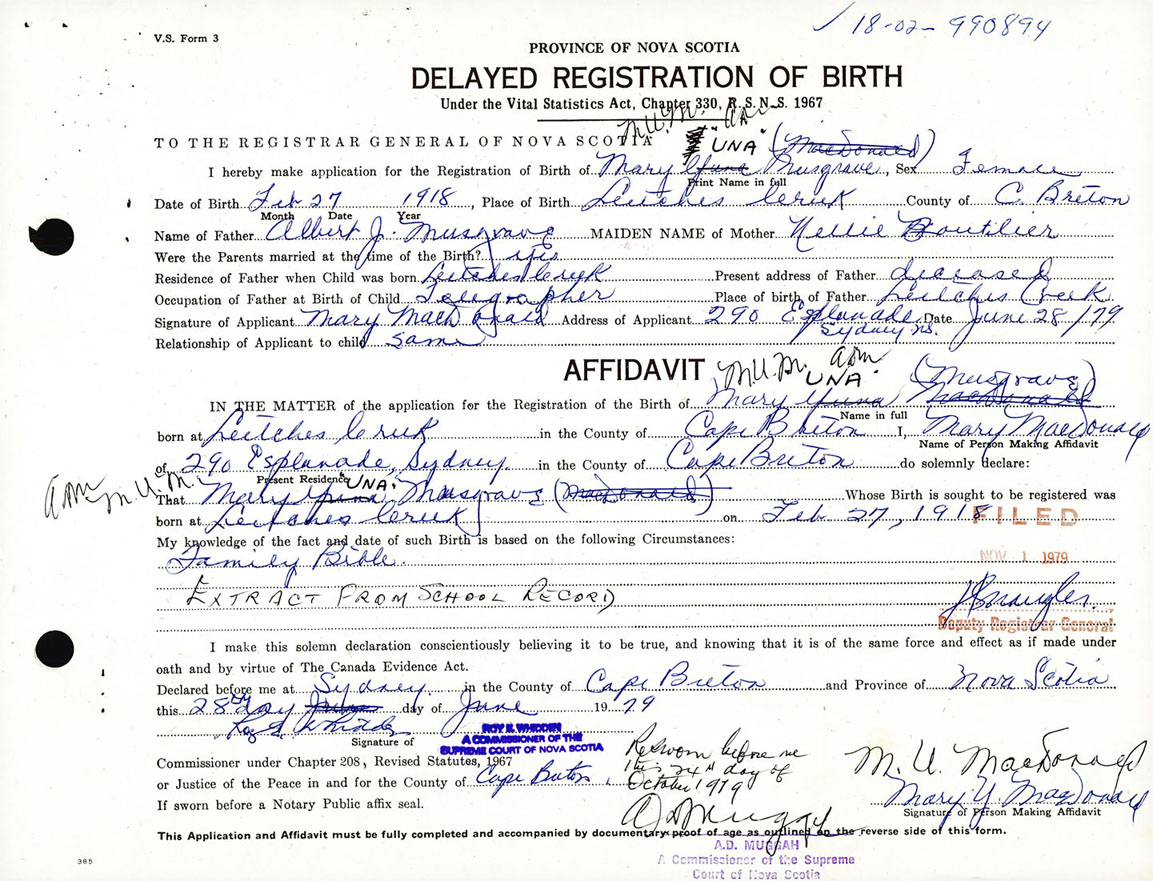 18-02-990894
V.S. Form 3
PROVINCE OF NOVA SCOTIA
DELAYED REGISTRATION OF BIRTH
Under the Vital Statistics Act, Chapter 330, R.S.N.S. 1967
M.U.M. adm
TO THE REGISTRAR GENERAL OF NOVA SCOTIA "UNA" (MacDonald)
I hereby make application for the Registration of Birth of Mary Musgrave, Sex Female
Print Name in full
Date of Birth Feb 27 1918, Place of Birth Leitches Creek County of C. Breton
Month Date Year
Name of Father Albert J. Musgrave MAIDEN NAME of Mother Nellie Boutilier
Were the Parents married at the time of the Birth? yes
Residence of Father when Child was born Leitches Creek Present address of Father deceased
Occupation of Father at Birth of Child Telegrapher Place of birth of Father Leitches Creek
Signature of Applicant Mary MacDonald Address of Applicant 290 Esplanade Date June 28/79
Sydney NS.
Relationship of Applicant to child Same
AFFIDAVIT M.U.M. adm
UNA (Musgrave)
IN THE MATTER of the application for the Registration of the Birth of Mary Yuna MacDonald
Name in full
born at Leitches Creek in the County of Cape Breton I, Mary MacDonald
Name of Person Making Affidavit
of 290 Esplanade, Sydney in the County of Cape Breton do solemnly declare:
Present Residence
adm M.U.M. UNA
That Mary Yuna Musgrave (MacDonald) Whose Birth is sought to be registered was
born at Leitches Creek on Feb 27, 1918
FILED
My knowledge of the fact and date of such Birth is based on the following Circumstances:
Family Bible.
NOV 1 1979
EXTRACT FROM SCHOOL RECORD
Deputy Registrar General
I make this solemn declaration conscientiously believing it to be true, and knowing that it is of the same force and effect as if made under
oath and by virtue of The Canada Evidence Act.
Declared before me at Sydney in the County of Cape Breton and Province of Nova Scotia
this 28th day of June 1979
Roy E. Whidden
ROY E. WHIDDEN
A COMMISSIONER OF THE
SUPREME COURT OF NOVA SCOTIA
Signature of
Commissioner under Chapter 208, Revised Statutes, 1967
or Justice of the Peace in and for the County of Cape Breton
If sworn before a Notary Public affix seal.
Resworn before me
this 24th day of
October 1979
A D Muggah
M. U. MacDonald
Mary Y. MacDonald
Signature of Person Making Affidavit
This Application and Affidavit must be fully completed and accompanied by documentary proof of age as outlined on the reverse side of this form.
A.D. MUGGAH
A Commissioner of the Supreme
Court of Nova Scotia
385